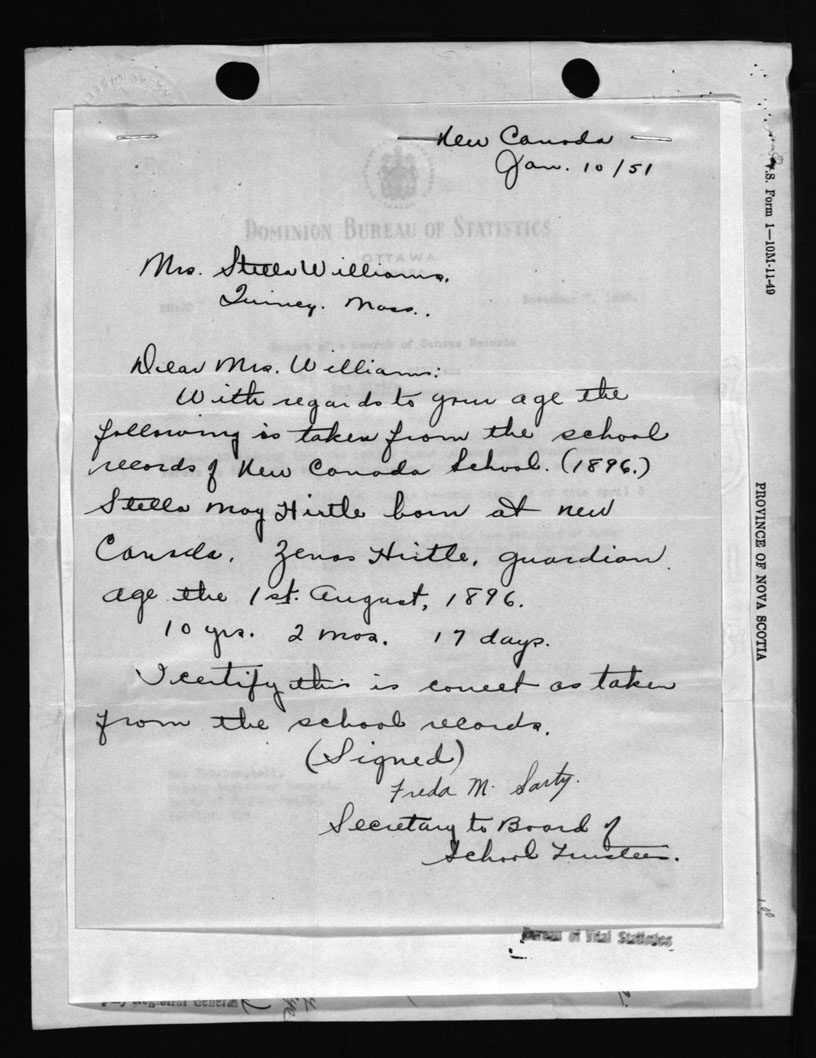 New Canada
Jan. 10/51
DOMINION BUREAU OF STATISTICS
OTTAWA
Mrs. Stella Williams,
Quincy. Mass..
Search of Census Records
Dear Mrs. Williams:
With regards to your age the
following is taken from the school
records of New Canada School. (1896.)
Stella May Hirtle born at new
Canada. Zenas Hirtle, guardian.
age the 1st. August, 1896.
10 yrs. 2 mos. 17 days.
I certify this is correct as taken
from the school records.
(Signed)
Freda M. Sarty.
Secretary to Board of
School Trustees.
Bureau of Vital Statistics
Registrar General
V.S. Form 1—10M-11-49
PROVINCE OF NOVA SCOTIA